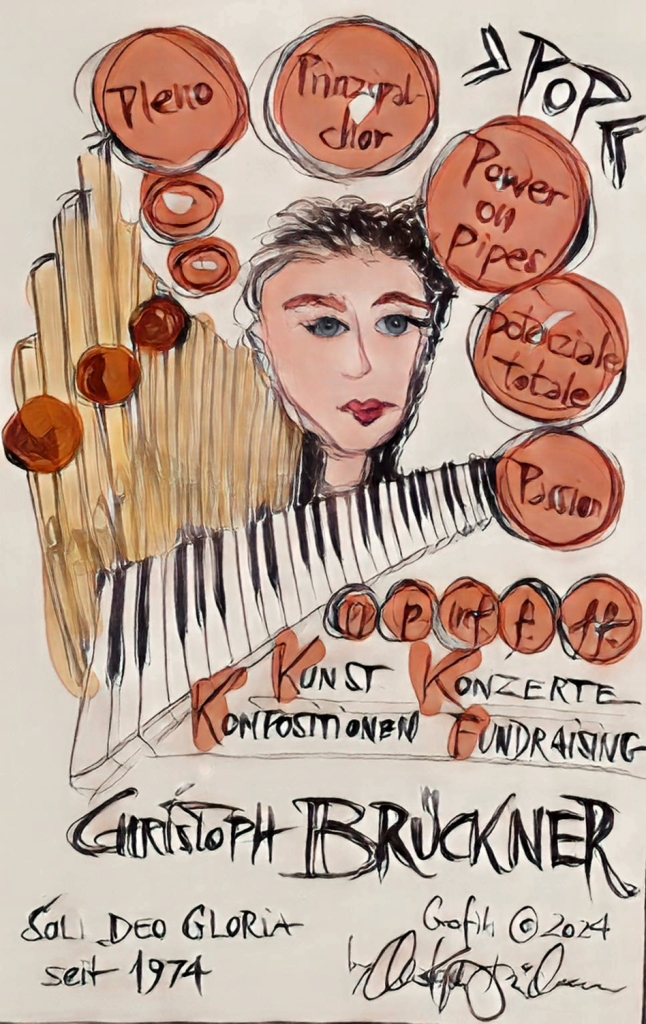 Pleno
Prinzipal-
chor
»POP«
Power
on
Pipes
potenziale
totale
Passion
p mf f ff
KUNST KONZERTE
KOMPOSITIONEN FUNDRAISING
CHRISTOPH BRÜCKNER
SOLI DEO GLORIA
seit 1974
Grafik © 2024
by